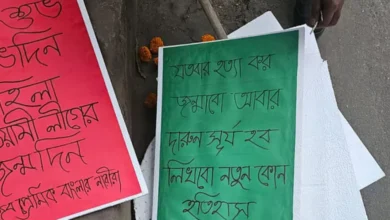 শুভ
ভদিন
হিলা
য়ামী লীগের
ন্মদিন
প্রেমিক বাংলার নারীরা
যতবার হত্যা কর
জন্মাবো আবার
দারুন সূর্য হব
লিখবো নতুন কোন
ইতিহাস